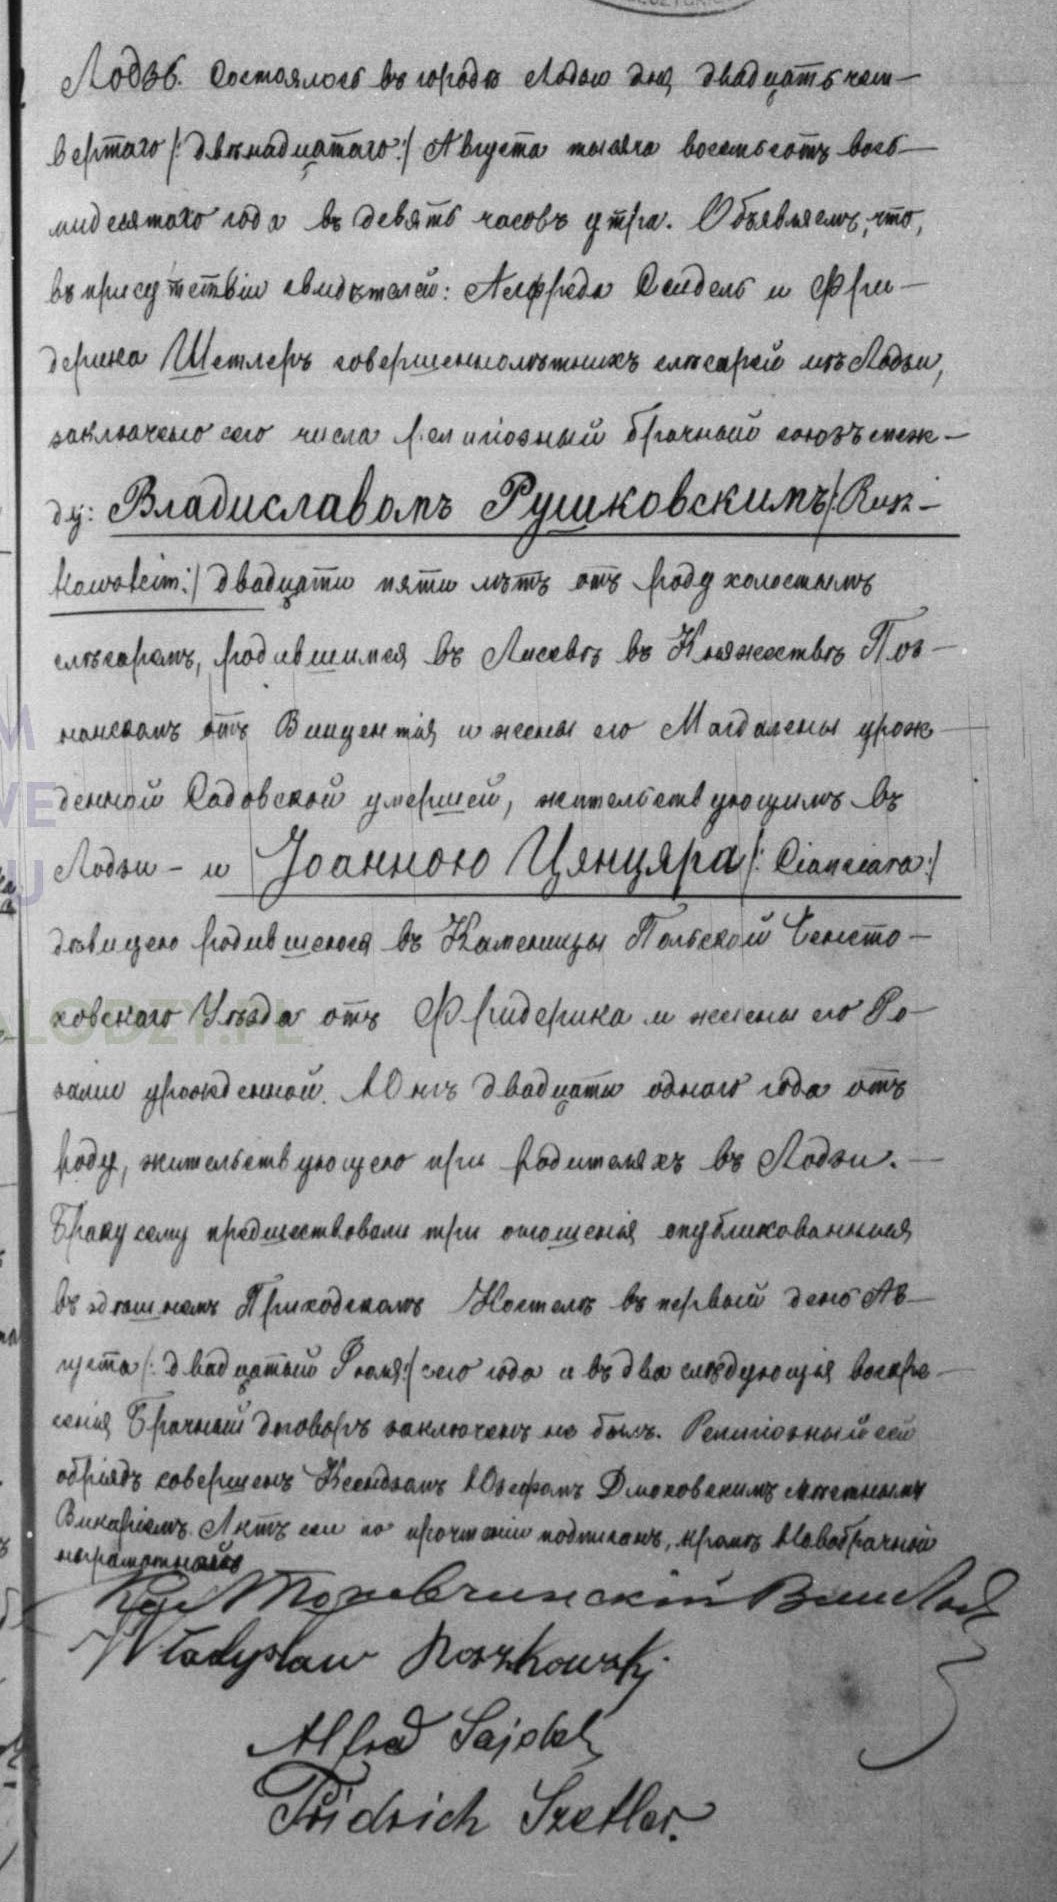 Лодзь. Состоялось въ городѣ Лодзи дня двадцать чет-
вертаго /: двѣнадцатаго :/ Августа тысяча восемьсотъ вось-
мидесятаго года въ девять часовъ утра. Объявляемъ, что,
въ присутствіи свидѣтелей: Алфреда Сейдель и Фри-
дерика Шетлеръ совершеннолѣтнихъ слѣсарей изъ Лодзи,
заключено сего числа религіозный брачный союзъ меж-
ду: Владиславомъ Рушковскимъ /: Rusz-
kowskim :/ двадцати пяти лѣтъ отъ роду холостымъ
слѣсаремъ, родившимся въ Лисевѣ въ Княжествѣ Поз-
нанскомъ отъ Винцентія и жены его Магдалены урож-
денной Садовской умершей, жительствующимъ въ
Лодзи - и Іоанною Цянцяра /: Cianciara :/
дѣвицею родившеюся въ Каменицы Польской Ченсто-
ховского Уѣзда отъ Фридерика и жены его Ро-
заліи урожденной Юнгъ двадцати одного года отъ
роду, жительствующею при родителяхъ въ Лодзи.
Браку сему предшествовали три оглошенія опубликованныя
въ здѣшнемъ Приходскомъ Костелѣ въ первый день Ав-
густа /: двадцатый Іюля :/ сего года и въ два слѣдующія воскре-
сенія Брачный договоръ заключенъ не былъ. Религіозный сей
обрядъ совершенъ Ксендзомъ Юзефомъ Дмоховскимъ мѣстнымъ
Викаріемъ. Актъ сей по прочтеніи подписанъ, кромѣ Новобрачной
неграмотной
Władysław Roszkowski
Alfred Sajdel
Fridrich Szetler.